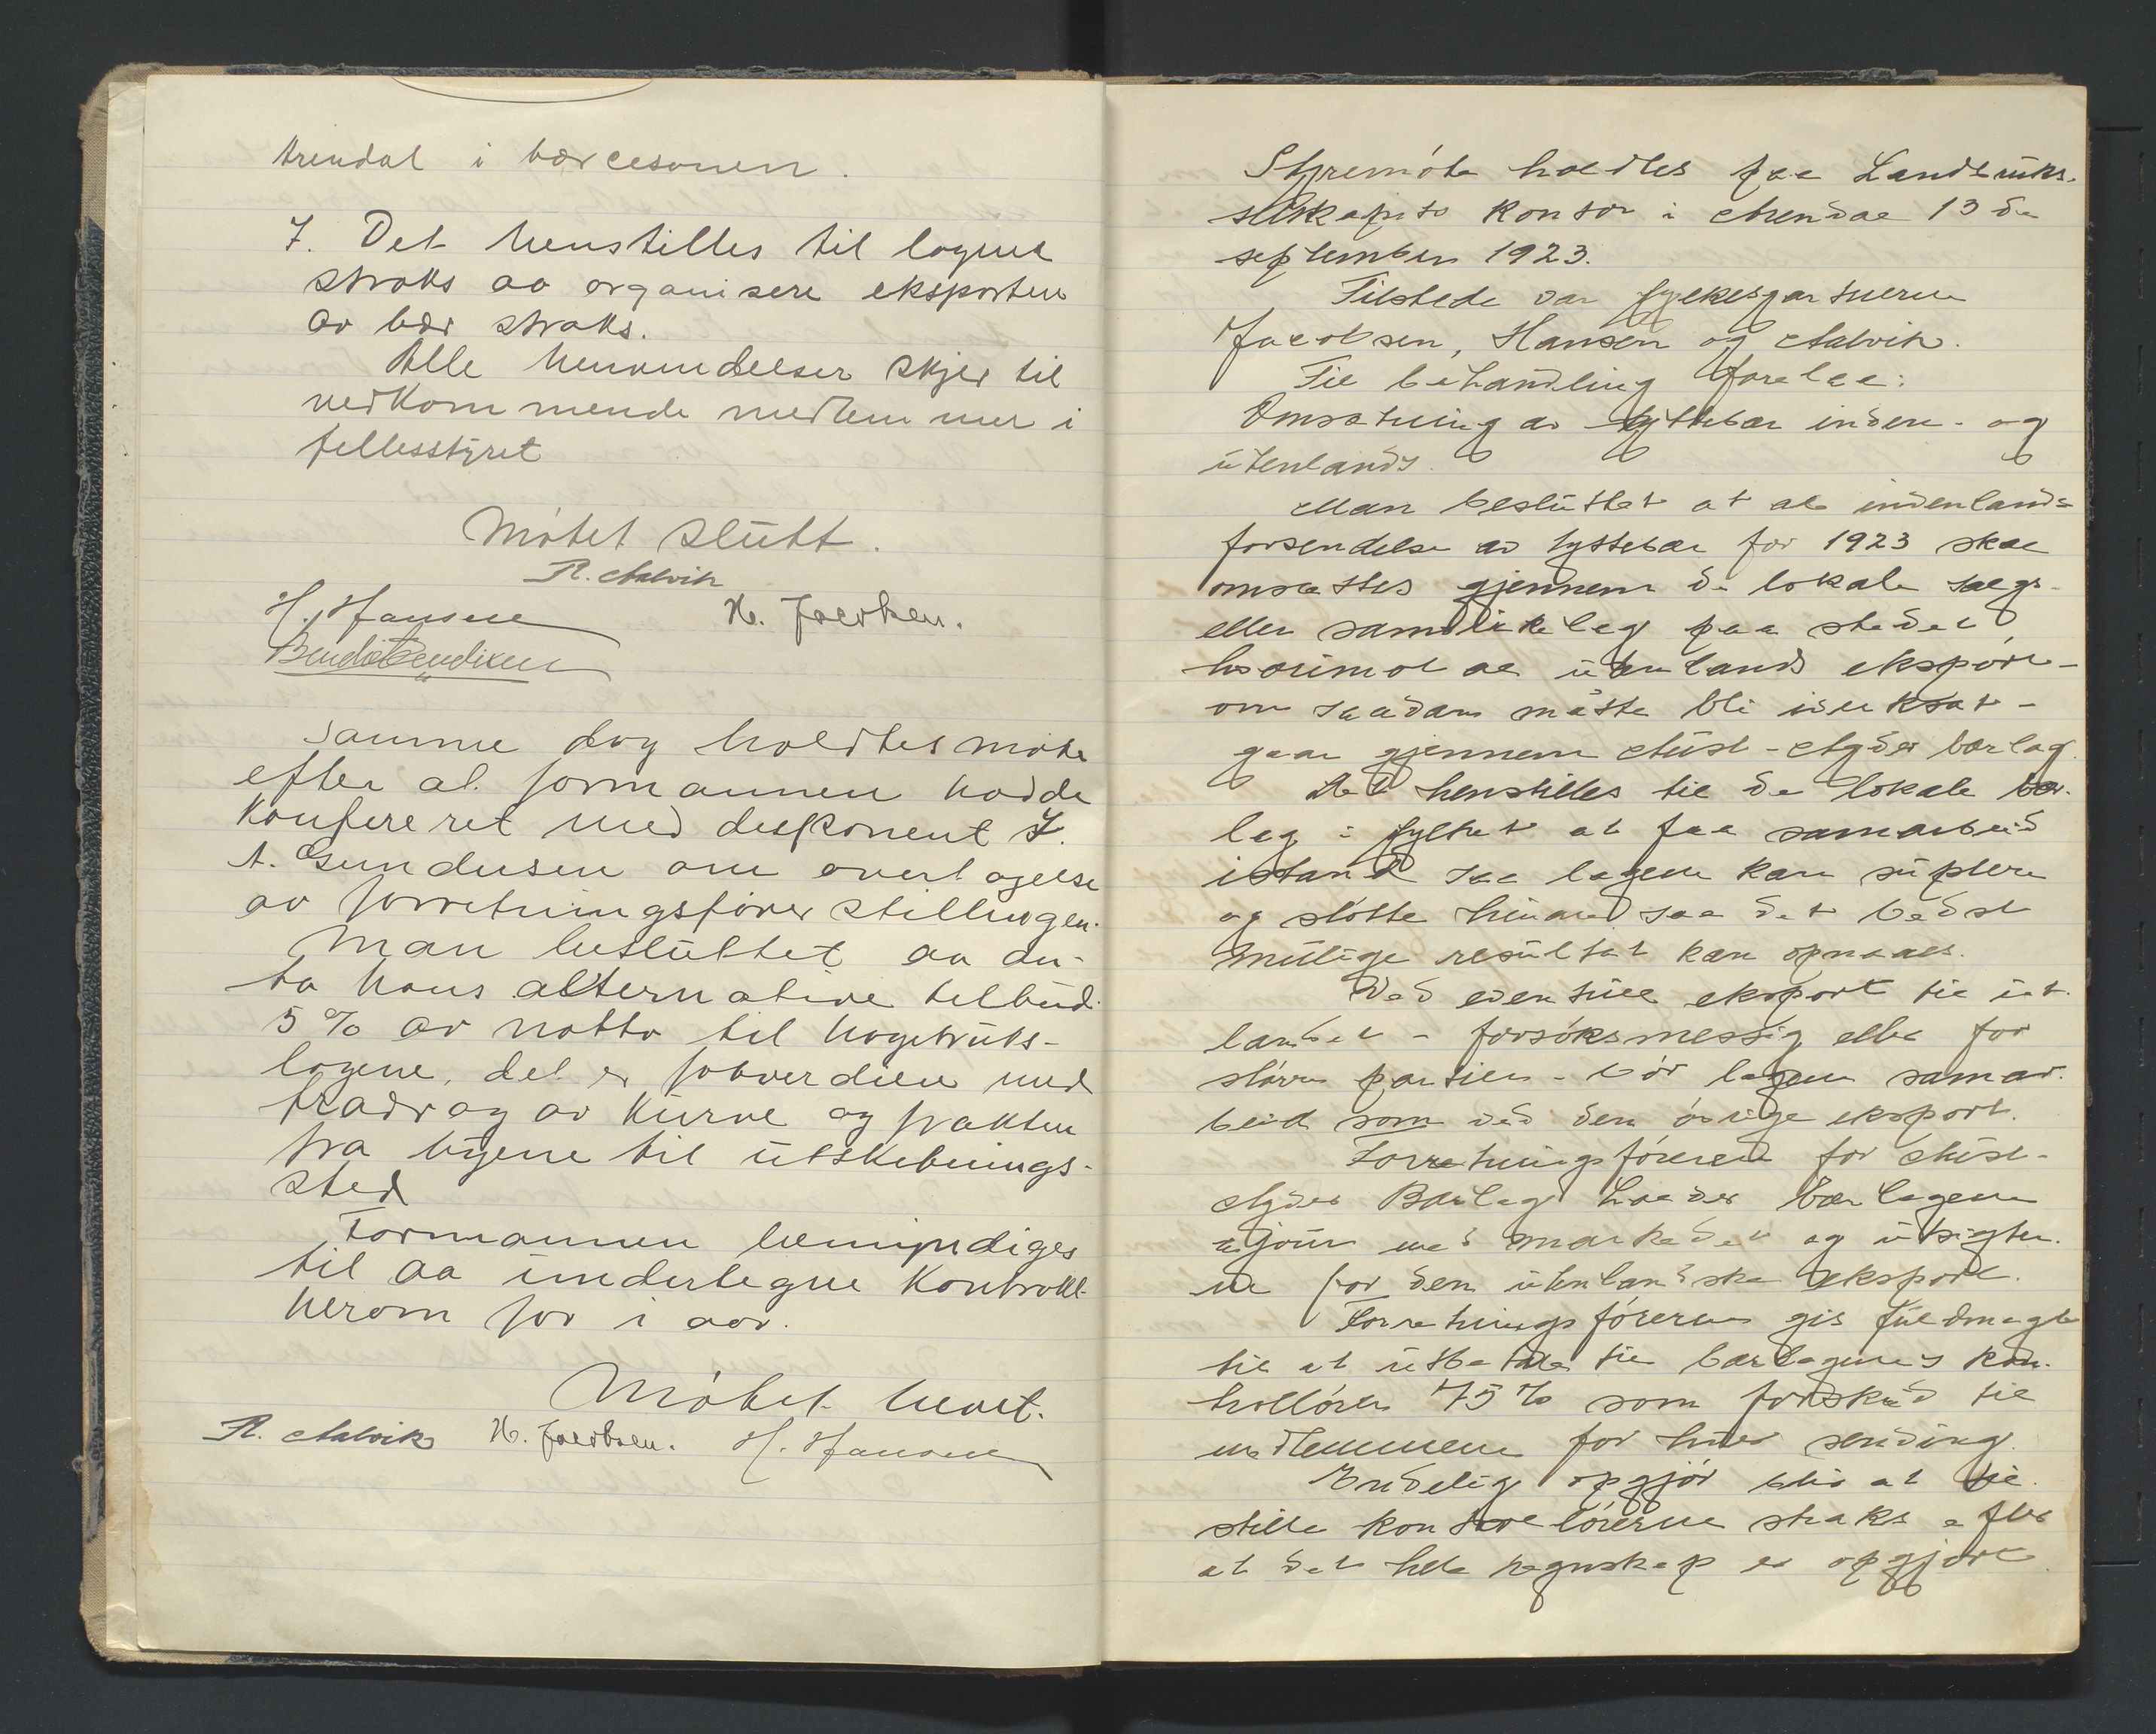 Arendal i bærcesonen.
7. Det henstilles til lagene
straks aa organisere eksporten
av bær straks.
Alle henvendelser skjer til
vedkommende medlemmer i
fellesstyret
Møtet slutt.
R. Aalvik
H. Hansen H. Jacobsen.
Bendix Bendixen
Samme dag holdtes møte
efter at formannen hadde
konfereret med disponent J.
A. Gundersen om overtagelse
av forretningsfører stillingen.
Man besluttet aa an-
ta hans alternative tilbud
5 % av netto til hagebruks-
lagene, det er fobverdien med
fradrag av kurve og frakten
fra byene til utskibnings-
sted
Formannen bemyndiges
til aa undertegne kontrakt
herom for i aar.
Møtet hevet.
R. Aalvik H. Jacobsen. H. Hansen
Styremøte holdtes paa Landbruks-
selskapets kontor i Arendal 13de
september 1923.
Tilstede var fylkesgartnerne
Jacobsen, Hansen og Aalvik.
Til behandling forelaa:
Omsætning av tyttebær inden- og
utenlands.
Man besluttet at al indenlands
forsendelse av tyttebær for 1923 skal
omsættes gjennem de lokale salgs-
eller samvirkelag paa stedet,
hvorimot al utenlands eksport-
om saadan måtte bli iverksat -
gaar gjennem Aust-Agder bærlag.
Det henstilles til de lokale bær-
lag i fylket at faa samarbeid
istand saa lagene kan suplere
og støtte hinanden saa det bedst
mulige resultat kan opnaaes.
Ved eventuel eksport til ut-
landet - forsøksmessig eller for
større partier - bør lagene samar-
beide som ved den øvrige eksport.
Forretningsføreren for Aust-
Agder Bærlag holder bærlagene
a jour med markedet og utsigter-
ne for den utenlandske eksport.
Forretningsføreren gis fuldmagt
til at utbetale til bærlagenes kon-
trollører 75 % som forskud til
medlemmene for hver sending.
Endelig opgjør blir at til-
stille kontrollørerne straks efter
at det hele regnskap er opgjort.